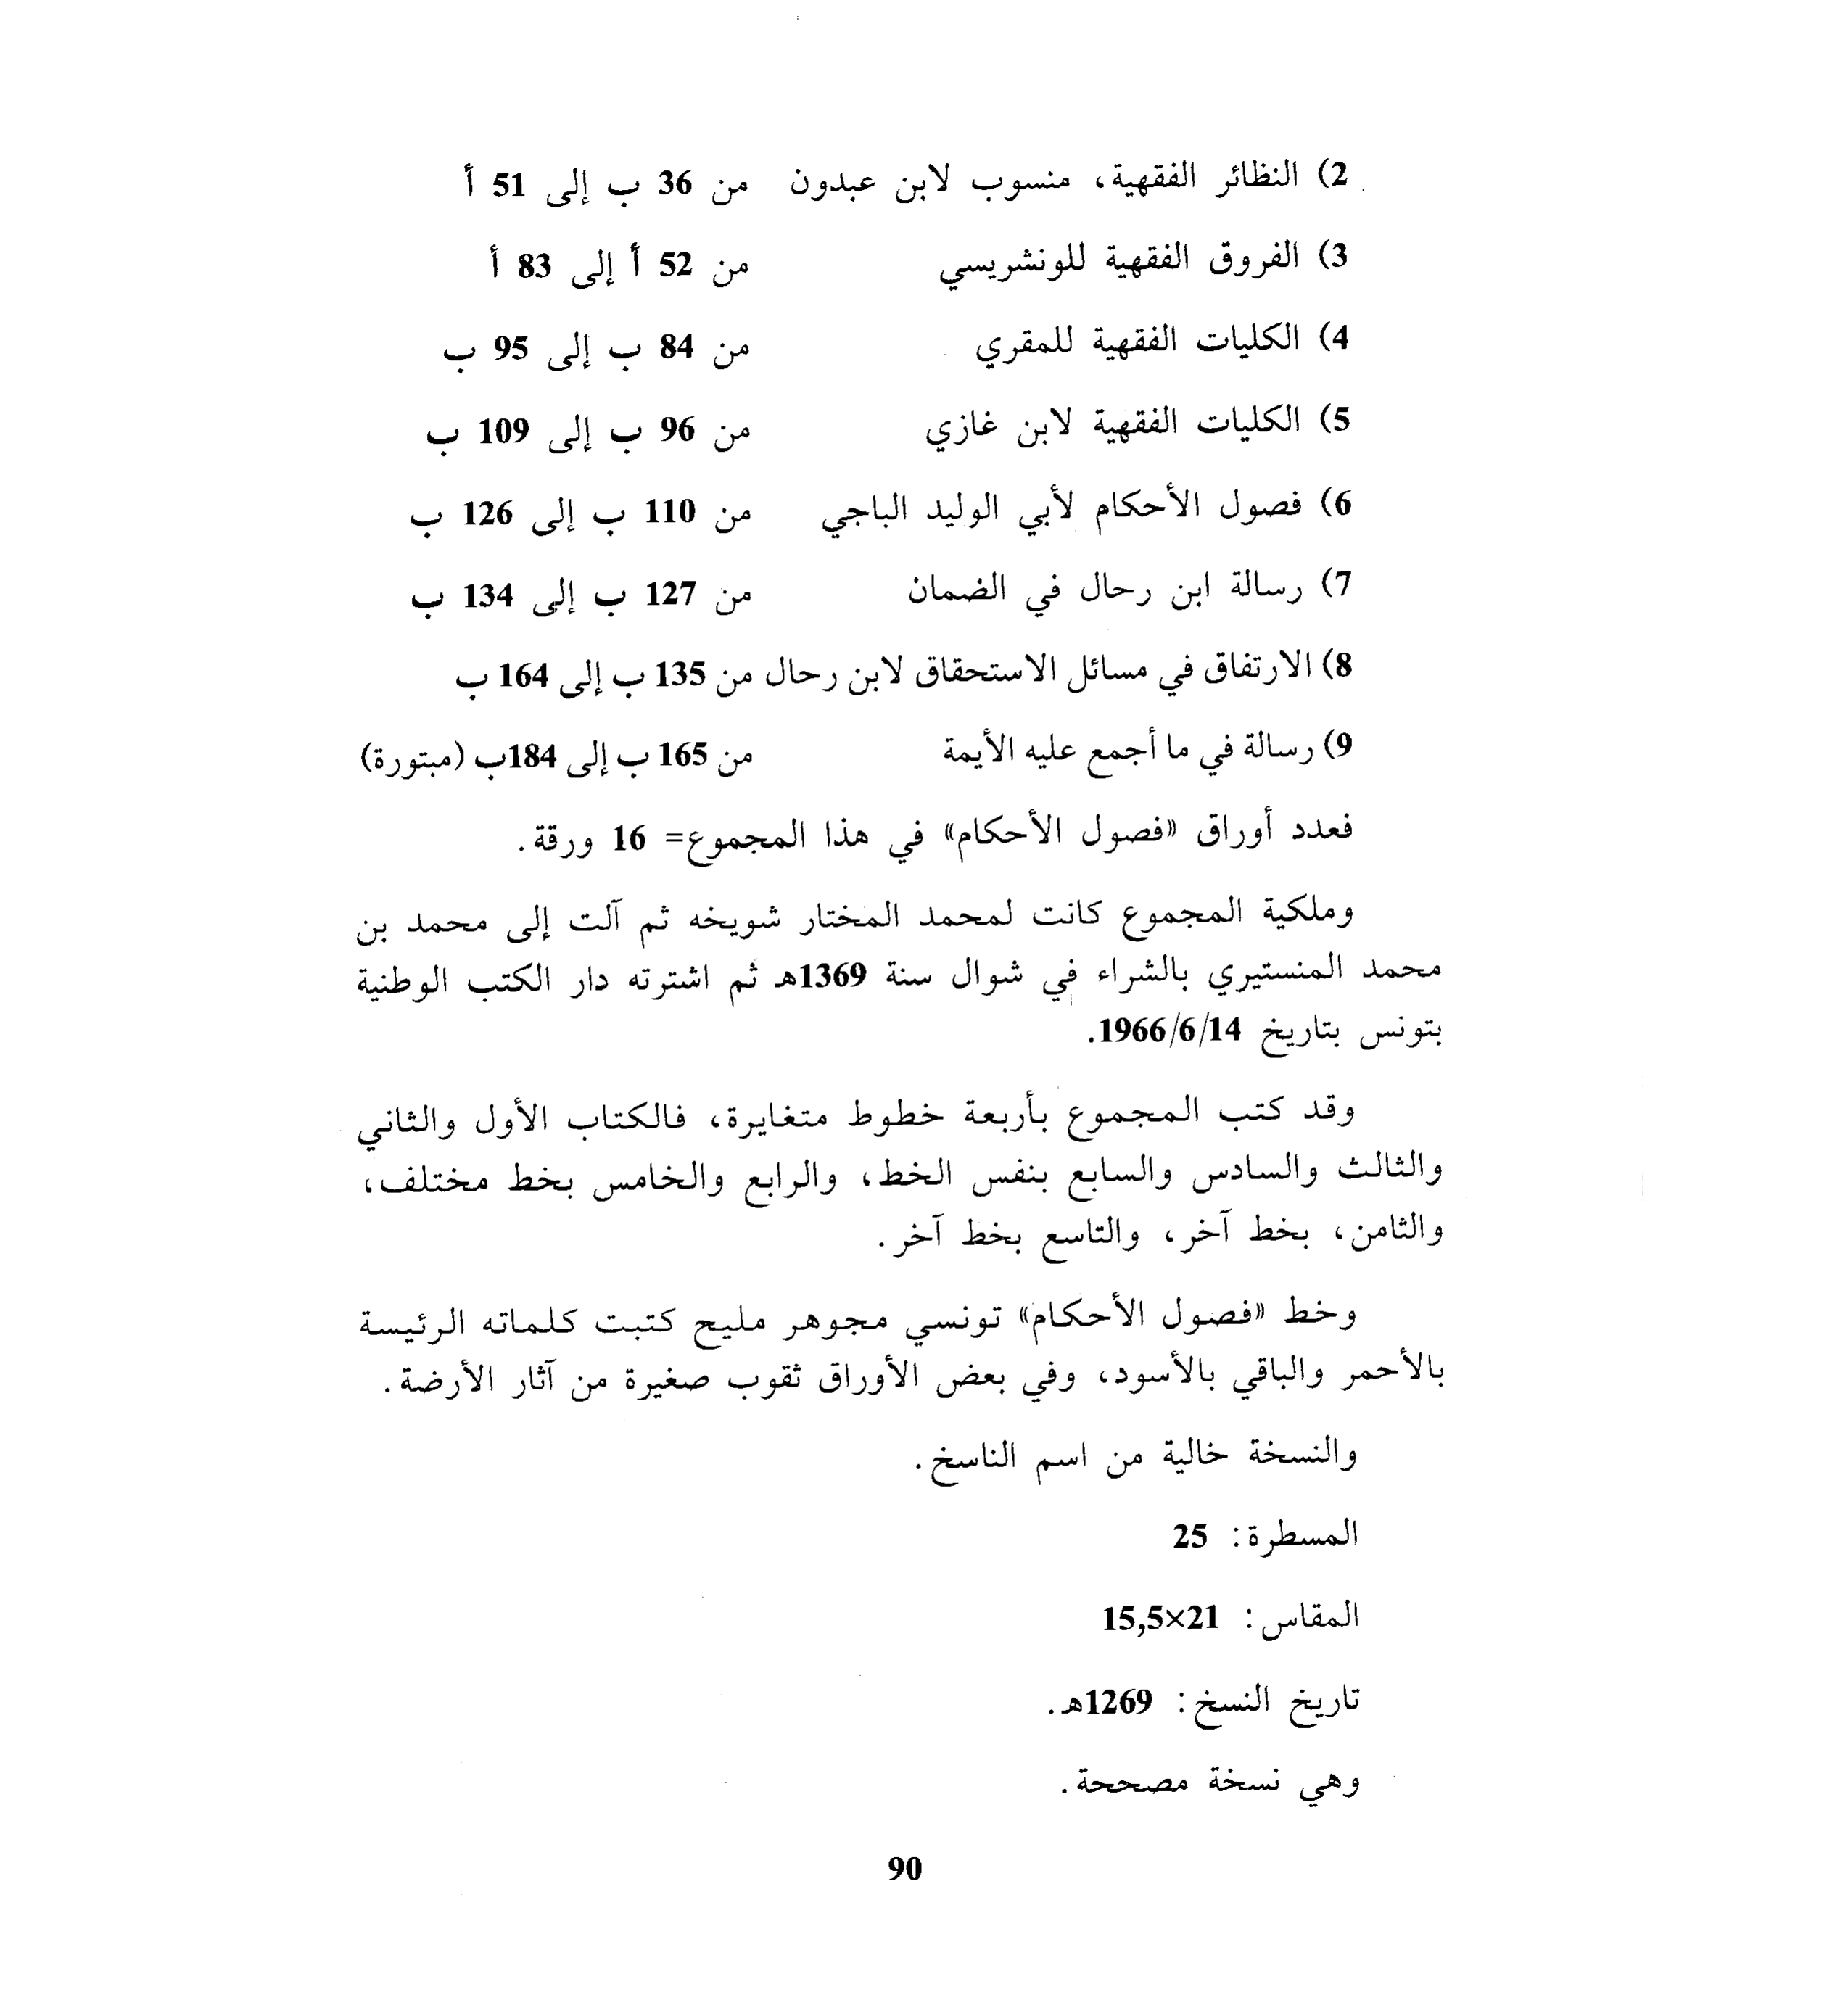 2) النظائر الفقهية، منسوب لابن عبدون من 36 ب إلى 51 أ
3) الفروق الفقهية للونشريسي من 52 أ إلى 83 أ
4) الكليات الفقهية للمقري من 84 ب إلى 95 ب
5) الكليات الفقهية لابن غازي من 96 ب إلى 109 ب
6) فصول الأحكام لأبي الوليد الباجي من 110 ب إلى 126 ب
7) رسالة ابن رحال في الضمان من 127 ب إلى 134 ب
8) الارتفاق في مسائل الاستحقاق لابن رحال من 135 ب إلى 164 ب
9) رسالة في ما أجمع عليه الأيمة من 165 ب إلى 184ب (مبتورة)
فعدد أوراق «فصول الأحكام» في هذا المجموع= 16 ورقة.
وملكية المجموع كانت لمحمد المختار شويخه ثم آلت إلى محمد بن
محمد المنستيري بالشراء في شوال سنة 1369هـ ثم اشترته دار الكتب الوطنية
بتونس بتاريخ 1966/6/14.
وقد كتب المجموع بأربعة خطوط متغايرة، فالكتاب الأول والثاني
والثالث والسادس والسابع بنفس الخط، والرابع والخامس بخط مختلف،
والثامن، بخط آخر، والتاسع بخط آخر.
وخط «فصول الأحكام» تونسي مجوهر مليح كتبت كلماته الرئيسة
بالأحمر والباقي بالأسود، وفي بعض الأوراق ثقوب صغيرة من آثار الأرضة.
والنسخة خالية من اسم الناسخ.
المسطرة: 25
المقاس: 21×15,5
تاريخ النسخ: 1269هـ.
وهي نسخة مصححة.
90